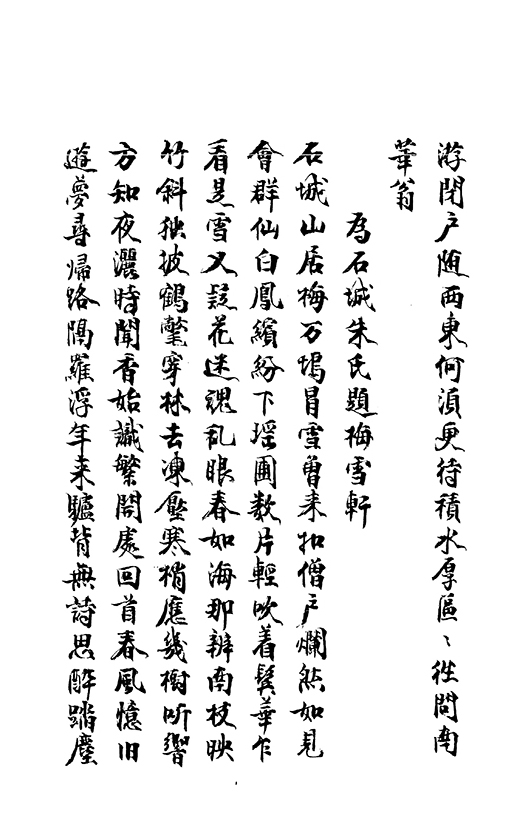 游閉户随西東何湏更待積水厚區〻徃問南
華翁
為石城朱氏題梅雪軒
石城山居梅万塢冒雪曾来扣僧户爛然如見
會群仙白鳳繽紛下瑶圃数片輕吹着鬓華乍
看是雪又疑花迷魂乱眼春如海那辨南枝映
竹斜独披鶴氅穿林去凍壓寒梢應幾樹听響
方知夜灑時聞香始識繁開處回首春風憶旧
遊夢尋帰路隔羅浮年来驢背無詩思醉踏塵